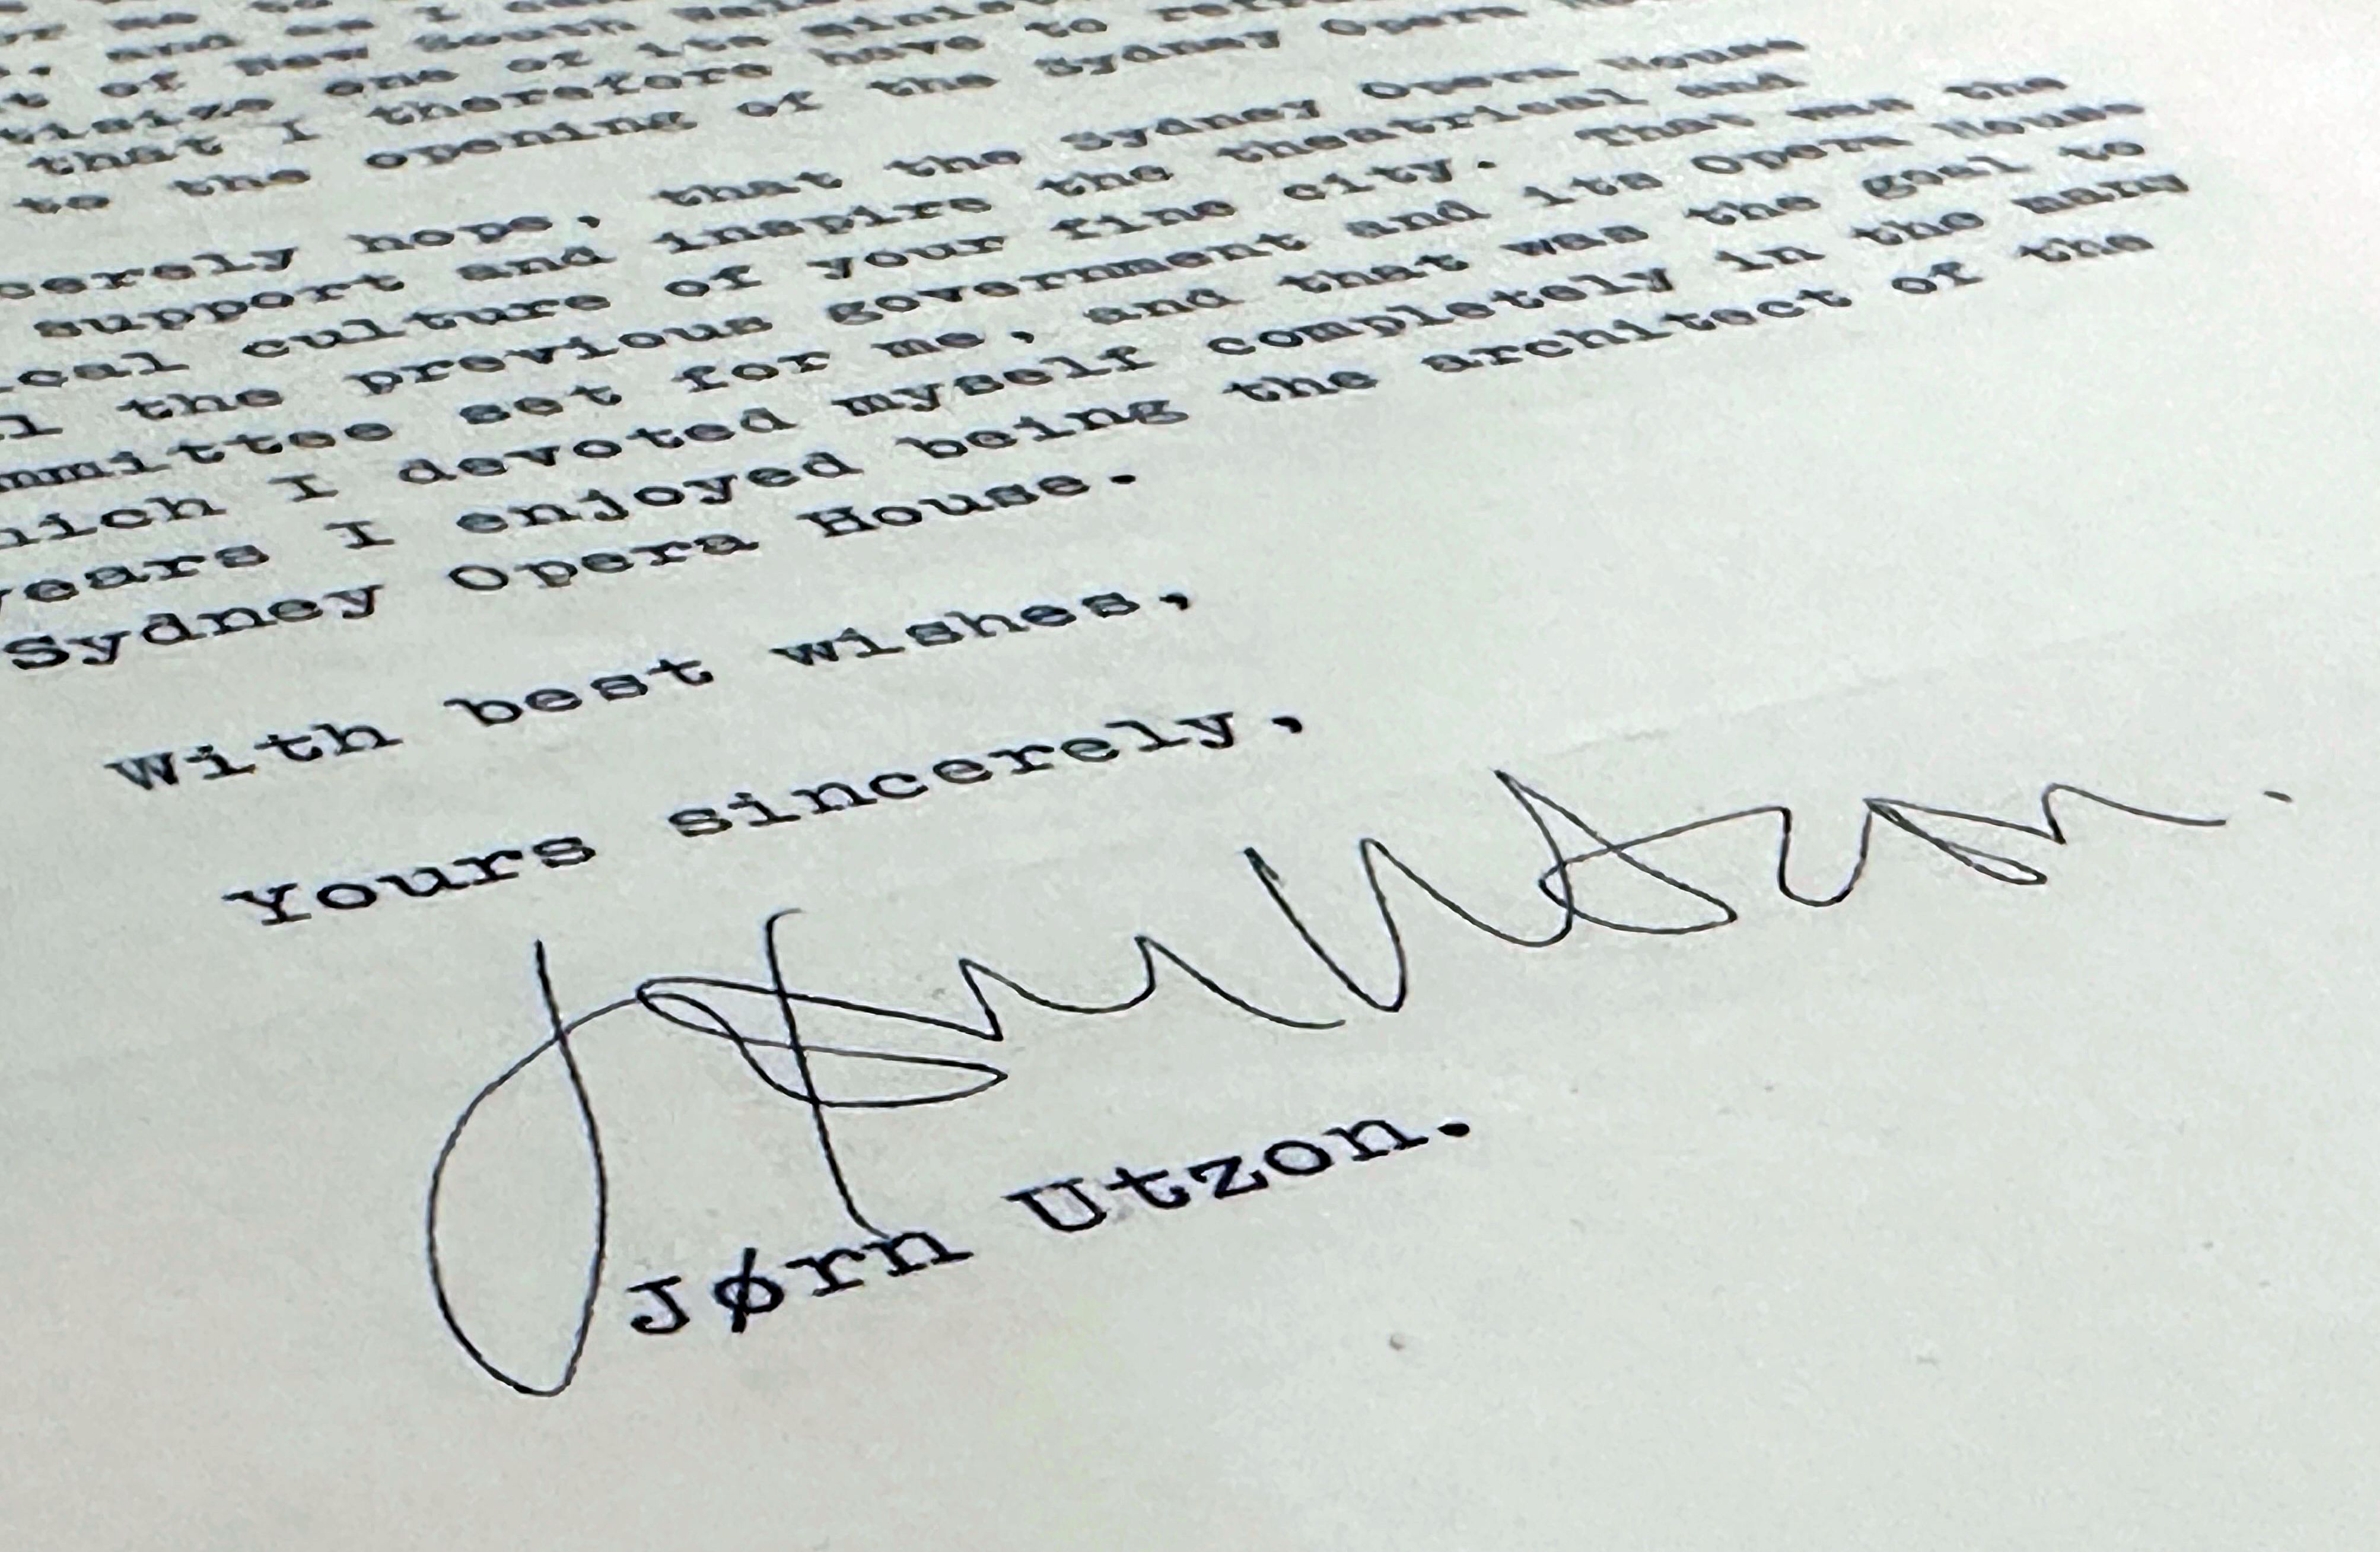 and as I
t of New South Wales
ticize one of its
that I therefore have to
to the opening of the Sydney Opera
cerely hope, that the Sydney Opera House
support and inspire the theatrical and
ical culture of your fine city. That was the
l the previous government and its Opera House
mmittee set for me, and that was the goal to
hich I devoted myself completely in the many
years I enjoyed being the architect of the
Sydney Opera House.
With best wishes,
Yours sincerely,
Jørn Utzon.
Jørn Utzon.